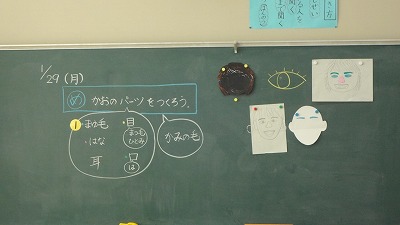 1/29(月)
め かおのパーツをつくろう。
① ・まゆ毛 ・目
まつ毛
ひとみ
・はな ・口
は
耳
かみの毛